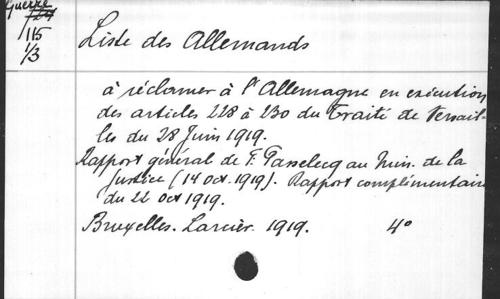 Guerre
115
1/3
Liste des Allemands
à réclamer à l'Allemagne en exécution
des articles 228 à 230 du Traité de Versail-
les du 28 Juin 1919.
Rapport général de F. Passelecq au Min. de la
Justice (14 oct. 1919). Rapport complémentaire
du 22 oct 1919.
Bruxelles. Larcier. 1919. 4°